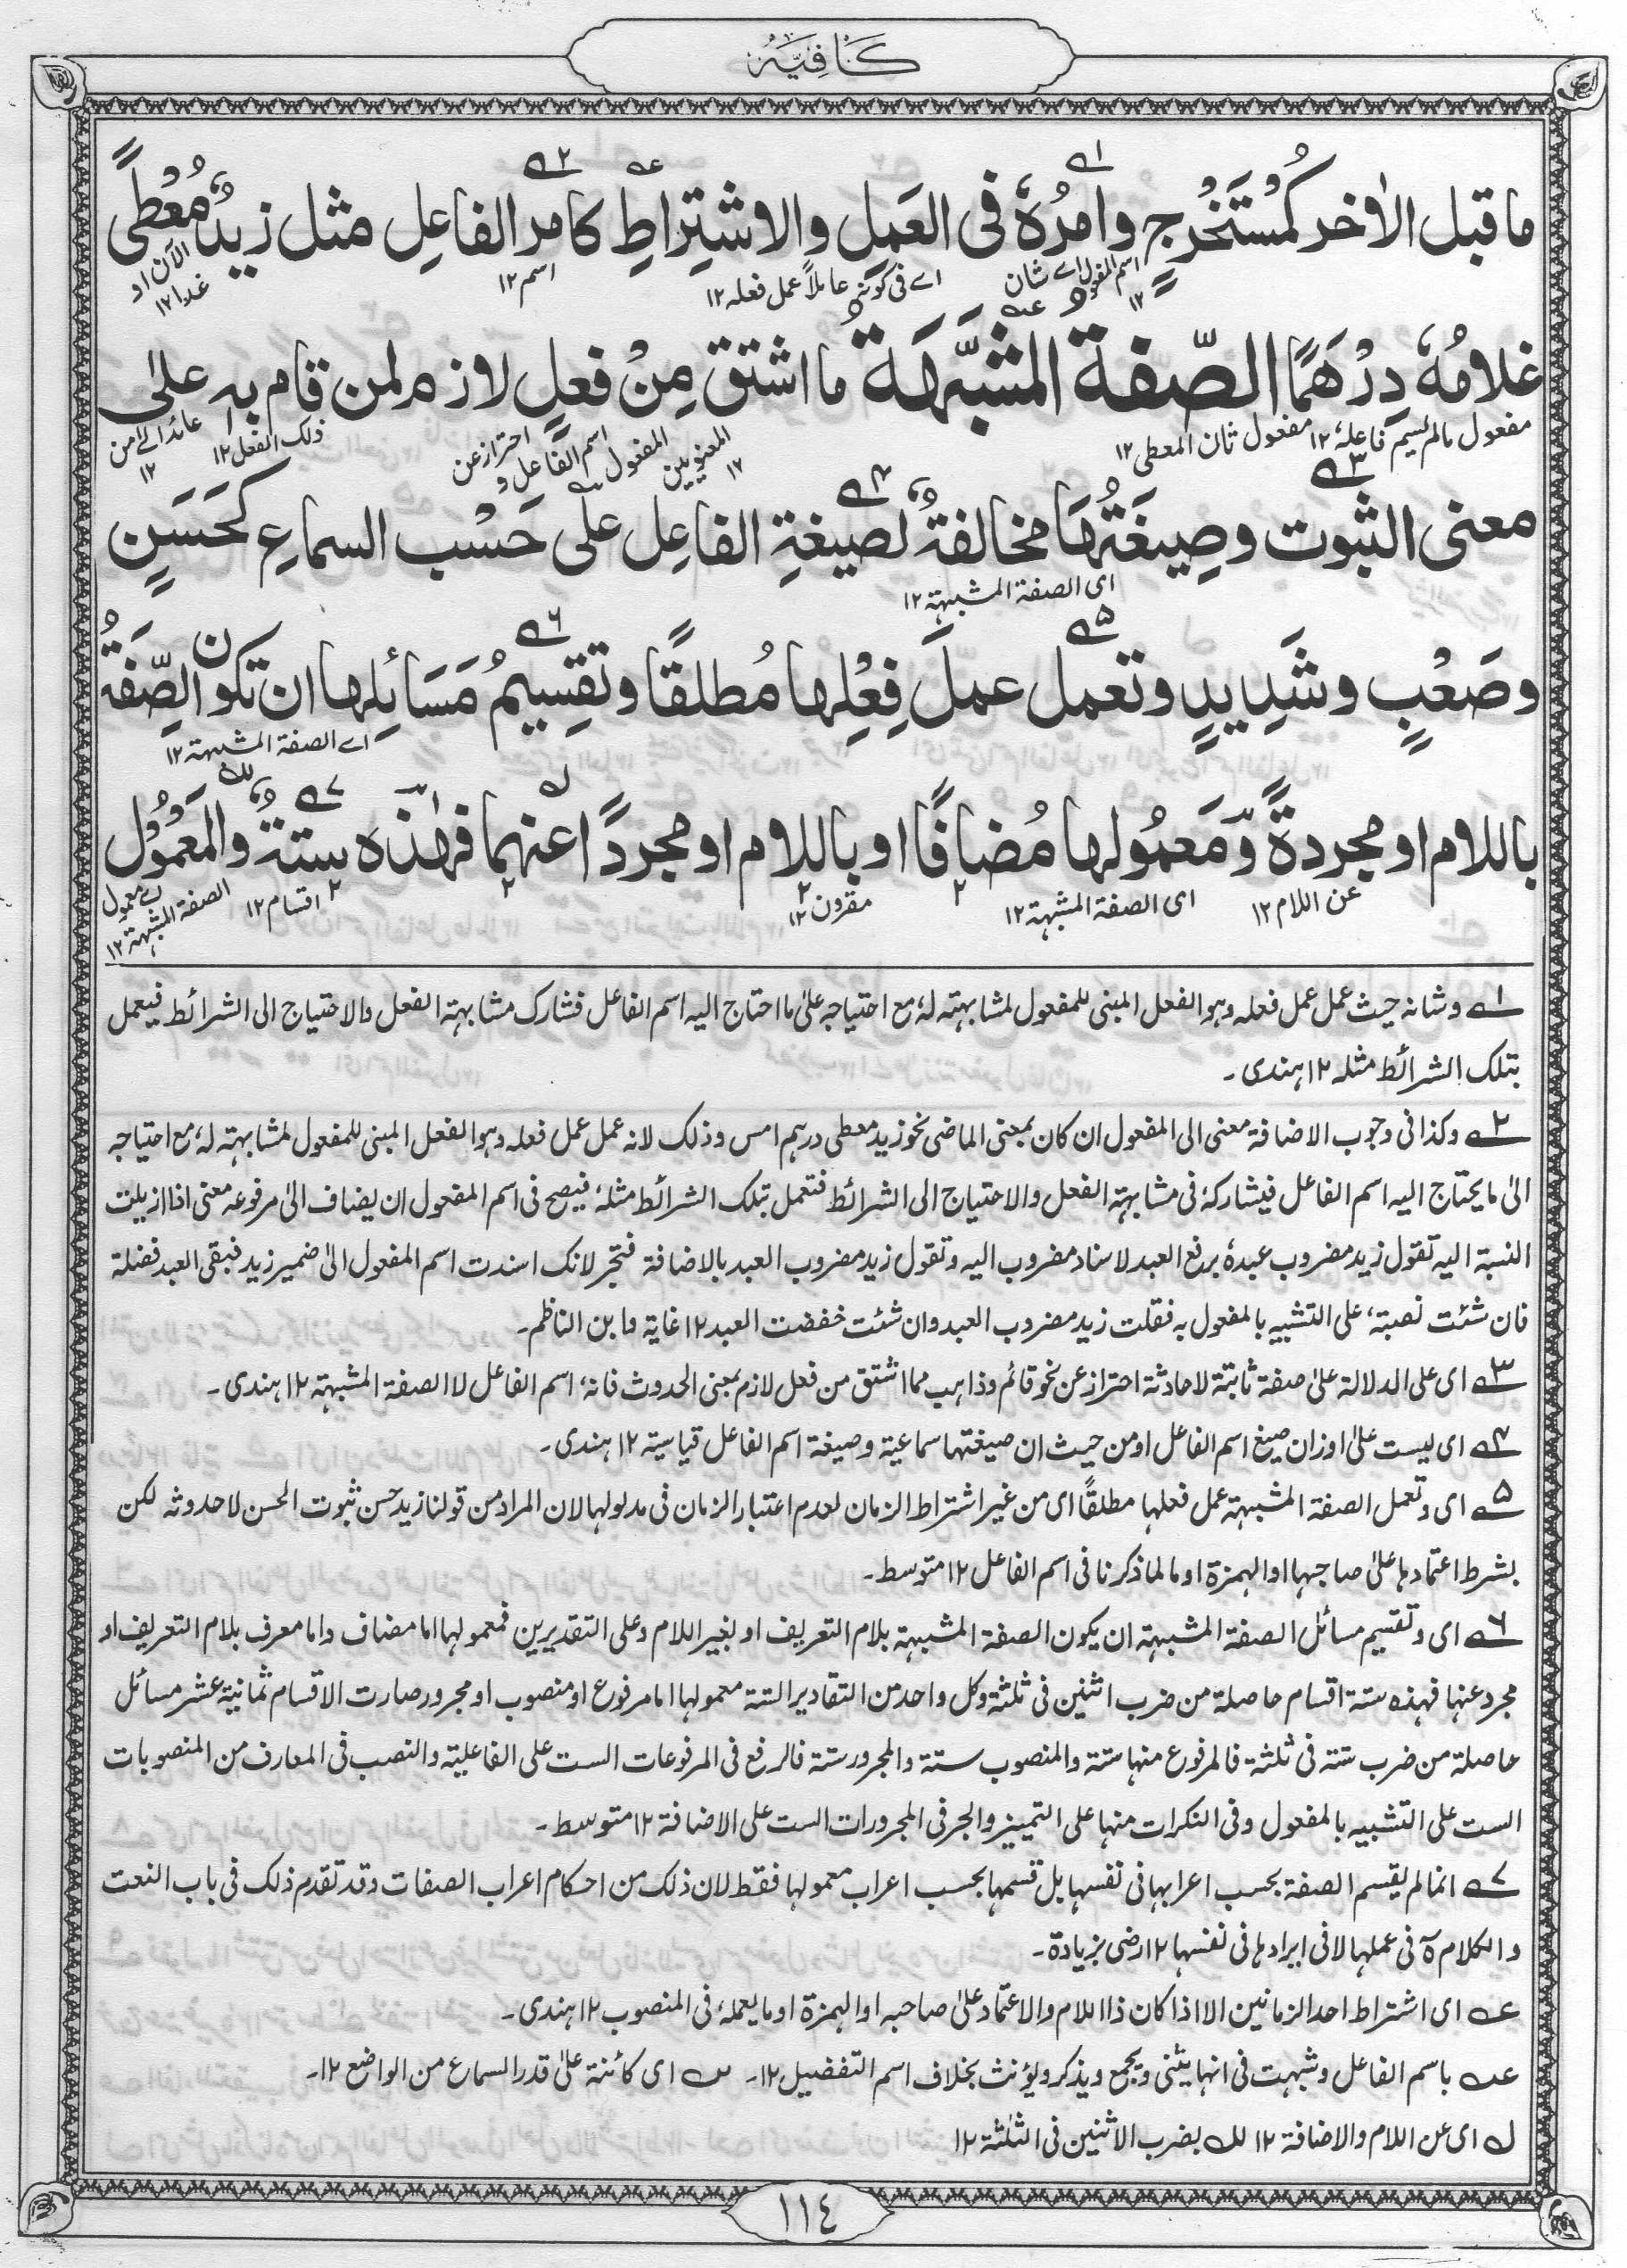 كَافِيَه
ماقبل الاٰخر كمُسْتَخْرَجٍ وامرُهٗ فى العَمَلِ والاشتِراطِ كامر الفاعِل مثل زيدٌ مُعْطًى
اسم المفعول اے شان ١٢
اے فى كونه عاملاً عمل فعله ١٢
اسم ١٢
الاٰن او غدا ١٢
غلامُهٗ دِرْهَمًا الصّفة المشبَّهَةُ ما اشتق مِنْ فعلٍ لازم لمن قام بہٖ علىٰ
مفعول مالم يسم فاعله ١٢
مفعول ثان المعطى ١٢
احتراز عن اسم الفاعل و المفعول المعنويين ١٢
ذلك الفعل ١٢
عائد الےٰ من ١٢
معنى الثبوت وصِيغَتُهَا مخالفةٌ لصيغةِ الفاعِل علىٰ حَسْب السماعِ كحَسَنٍ
اى الصفة المشبهة ١٢
وصَعْبٍ وشَدِيدٍ وتعمل عملَ فِعْلِها مُطلقًا وتقسِيمُ مَسَائِلِها ان تكون الصِّفةُ
اے الصفة المشبهة ١٢
باللام او مجردةً وَّمَعمُولها مُضافًا او باللام او مجردًا عنهما فهٰذه ستةٌ والمَعمُوْل
عن اللام ١٢
اى الصفة المشبهة ١٢
مقرون ١٢
اقسام ١٢
اے معمول الصفة المشبهة ١٢
١ے وشانه حيث عمل عمل فعله وهو الفعل المبنى للمفعول لمشابهته له مع احتياجه علىٰ ما احتاج اليه اسم الفاعل فشارك مشابهة الفعل والاحتياج الى الشرائط فيعمل
بتلك الشرائط مثله ١٢ هندى۔
٢ے وكذا فى وجوب الاضافة معنى الى المفعول ان كان بمعنى الماضى نحو زيد معطى درهم امس وذلك لانه عمل عمل فعله وهو الفعل المبنى للمفعول لمشابهته له مع احتياجه
الىٰ ما يحتاج اليه اسم الفاعل فيشاركهٗ فى مشابهة الفعل والاحتياج الى الشرائط فتعمل بتلك الشرائط مثلهٗ فيصح فى اسم المفعول ان يضاف الىٰ مرفوعه معنى اذا ازيلت
النسبة اليه تقول زيد مضروب عبدهٗ برفع العبد لاسناد مضروب اليه وتقول زيد مضروب العبد بالاضافة فتجر لانك اسندت اسم المفعول الىٰ ضمير زيد فبقى العبد فضلة
فان شئت نصبته على التشبيه بالمفعول به فقلت زيد مضروب العبد وان شئت خفضت العبد ١٢ غاية وابن الناظم۔
٣ے اى على الدلالة علىٰ صفة ثابتة لا حادثة احتراز عن نحو قائم وذاهب مما اشتق من فعل لازم بمعنى الحدوث فانه اسم الفاعل لا الصفة المشبهة ١٢ هندى۔
٤ے اى ليست علىٰ اوزان صيغ اسم الفاعل او من حيث ان صيغتها سماعية وصيغة اسم الفاعل قياسية ١٢ هندى۔
٥ے اى وتعمل الصفة المشبهة عمل فعلها مطلقًا اى من غير اشتراط الزمان لعدم اعتبار الزمان فى مدلولها لان المراد من قولنا زيد حسن ثبوت الحسن لا حدوثه لكن
بشرط اعتمادها علىٰ صاحبها او الهمزة او ما لما ذكرنا فى اسم الفاعل ١٢ متوسط۔
٦ے اى وتقسيم مسائل الصفة المشبهة ان يكون الصفة المشبهة بلام التعريف او بغير اللام وعلى التقديرين فمعمولها اما مضاف واما معرف بلام التعريف او
مجرد عنها فهذه ستة اقسام حاصلة من ضرب اثنين فى ثلثة وكل واحد من التقادير الستة معمولها اما مرفوع او منصوب او مجرور صارت الاقسام ثمانية عشر مسائل
حاصلة من ضرب ستة فى ثلثة فالمرفوع منها ستة والمنصوب ستة والمجرور ستة فالرفع فى المرفوعات الست على الفاعلية والنصب فى المعارف من المنصوبات
الست على التشبيه بالمفعول وفى النكرات منها على التمييز والجر فى المجرورات الست على الاضافة ١٢ متوسط۔
٧ے انما لم يقسم الصفة بحسب اعرابها فى نفسها بل قسمها بحسب اعراب معمولها فقط لان ذلك من احكام اعراب الصفات وقد تقدم ذلك فى باب النعت
والكلام ہٰ فى عملها لا فى ايرادها فى نفسها ١٢ رضى بزيادة۔
عہ اى اشتراط احد الزمانين الا اذا كان ذا اللام والاعتماد علىٰ صاحبه او الهمزة او ما يعمله فى المنصوب ١٢ هندى۔
عہ باسم الفاعل وشبهت فى انها يثنى ويجمع ويذكر ويؤنث بخلاف اسم التفضيل ١٢۔ سہ اى كائنة علىٰ قدر السماع من الواضع ١٢۔
لہ اى عن اللام والاضافة ١٢ للہ بضرب الاثنين فى الثلثة ١٢
١١٤